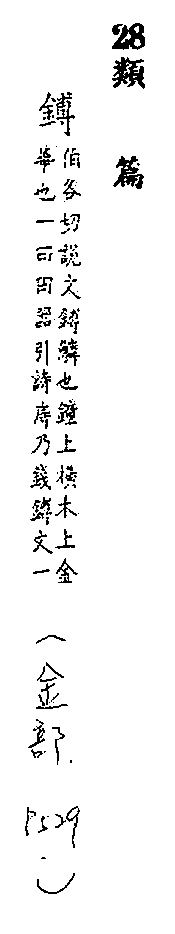 28類篇
鎛伯各切說文鎛鱗也鐘上橫木上金
華也一曰田器引詩庤乃錢鎛文一
(金部.P529.)